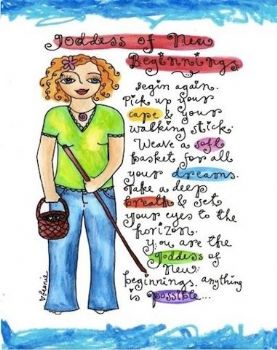 goddess of New
Beginnings
Begin again.
Pick up your
cape & your
walking stick.
Weave a soft
basket for all
your dreams.
Take a deep
breath & set
your eyes to the
horizon.
You are the
goddess of
New
beginnings. anything
is possible...